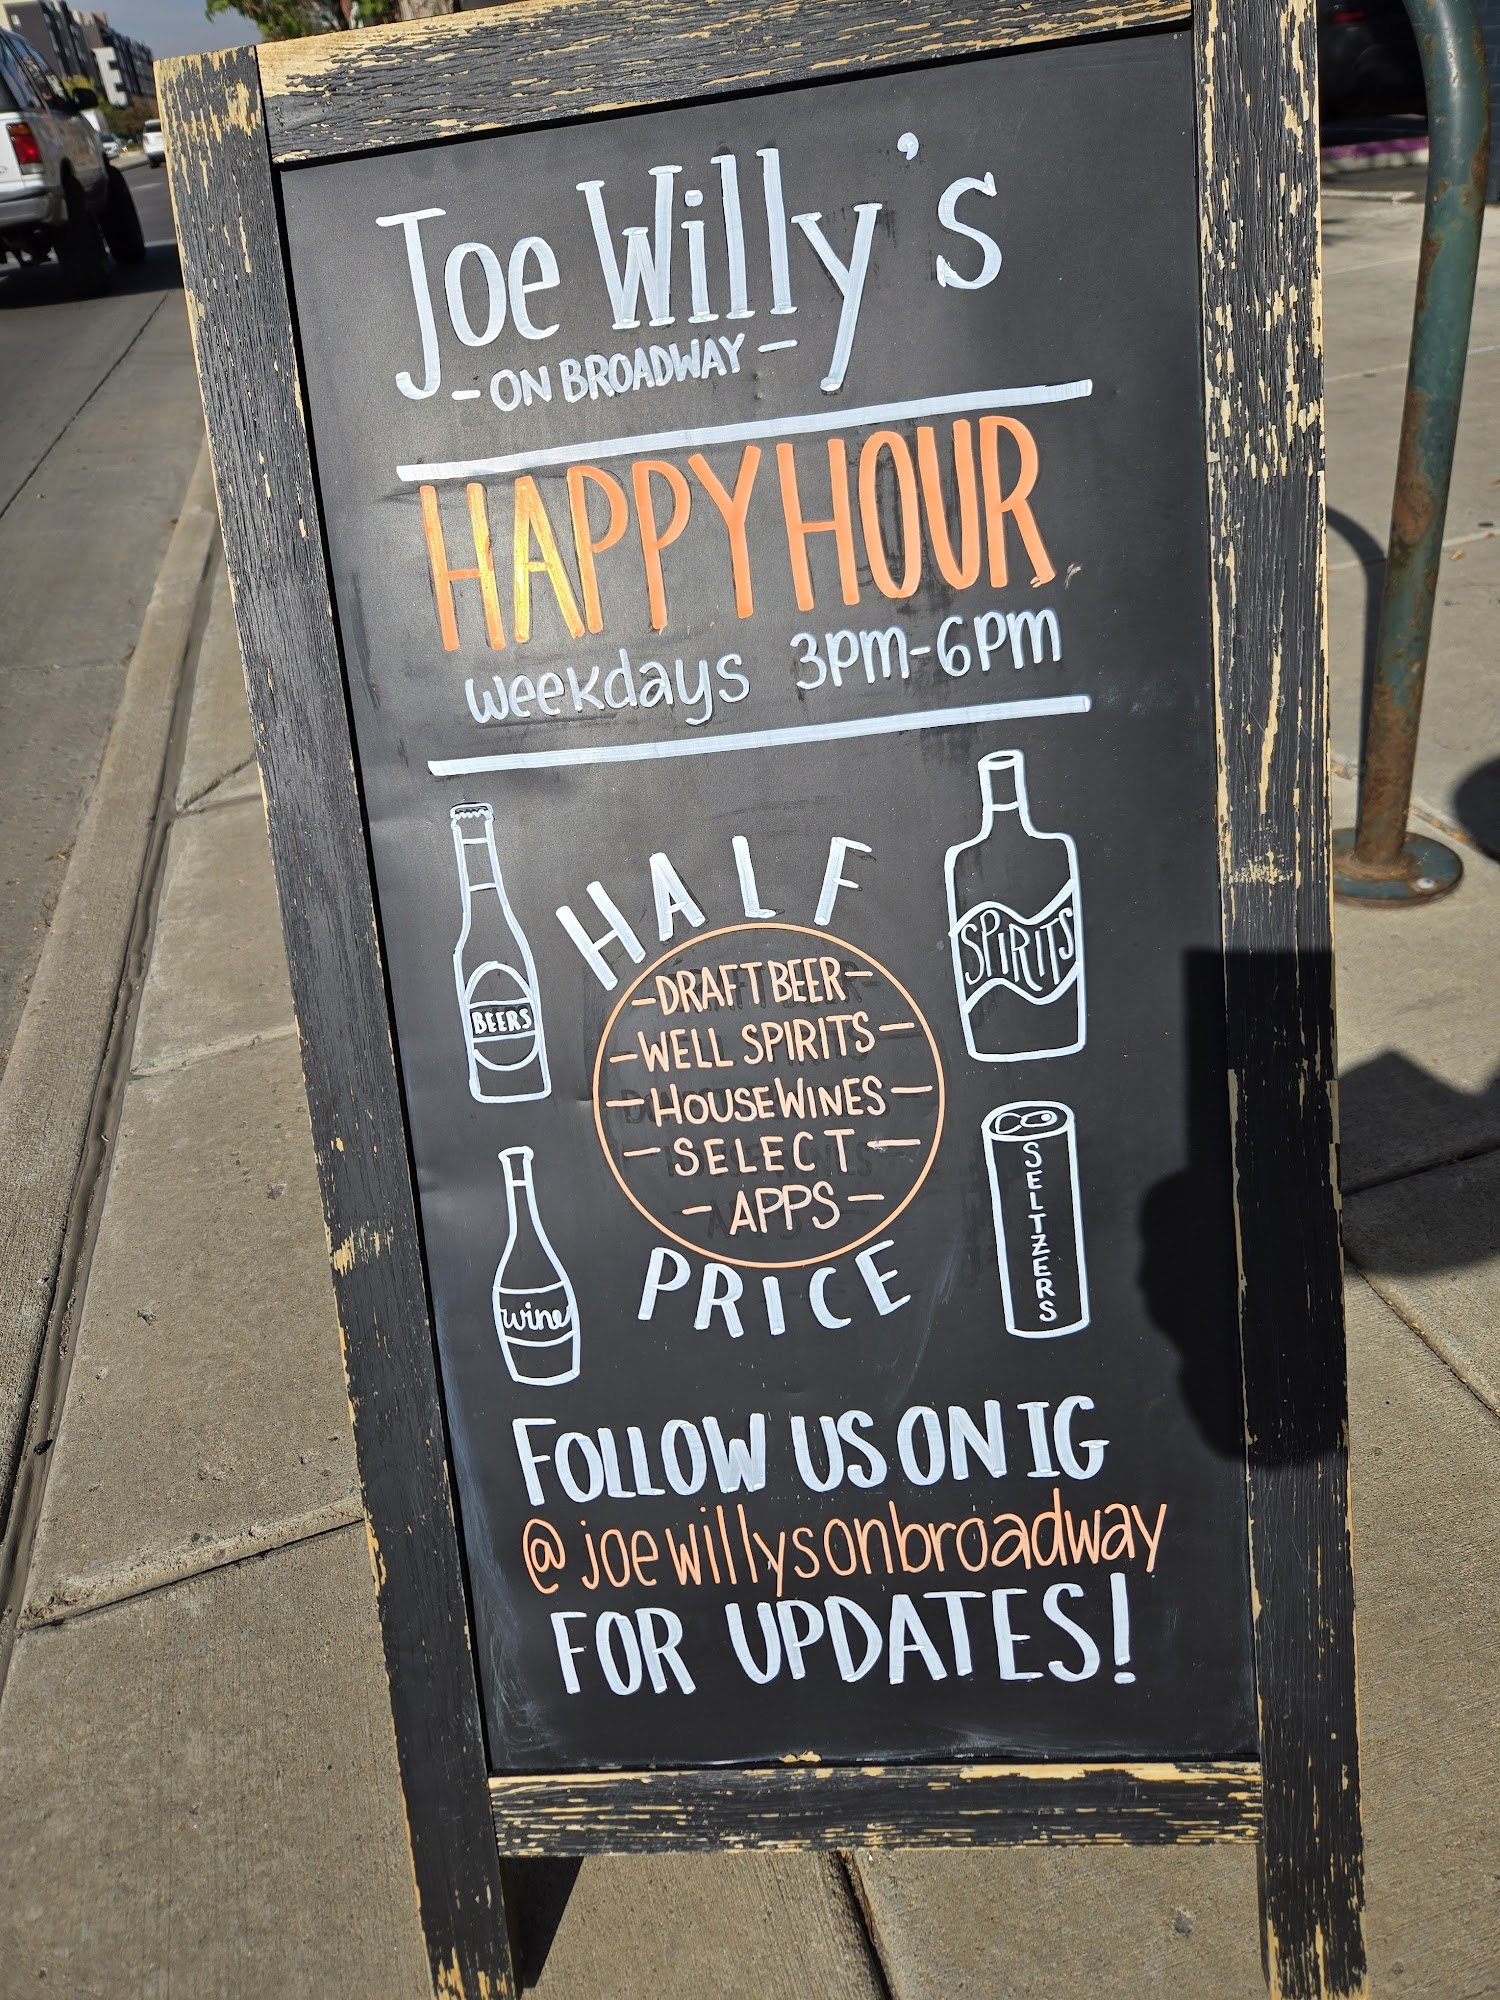 Joe Willy's
- ON BROADWAY -
HAPPY HOUR
weekdays 3pm-6pm
HALF
- DRAFT BEER -
- WELL SPIRITS -
- HOUSE WINES -
- SELECT -
- APPS -
PRICE
BEERS
SPIRITS
wine
SELTZERS
FOLLOW US ON IG
@joewillysonbroadway
FOR UPDATES!